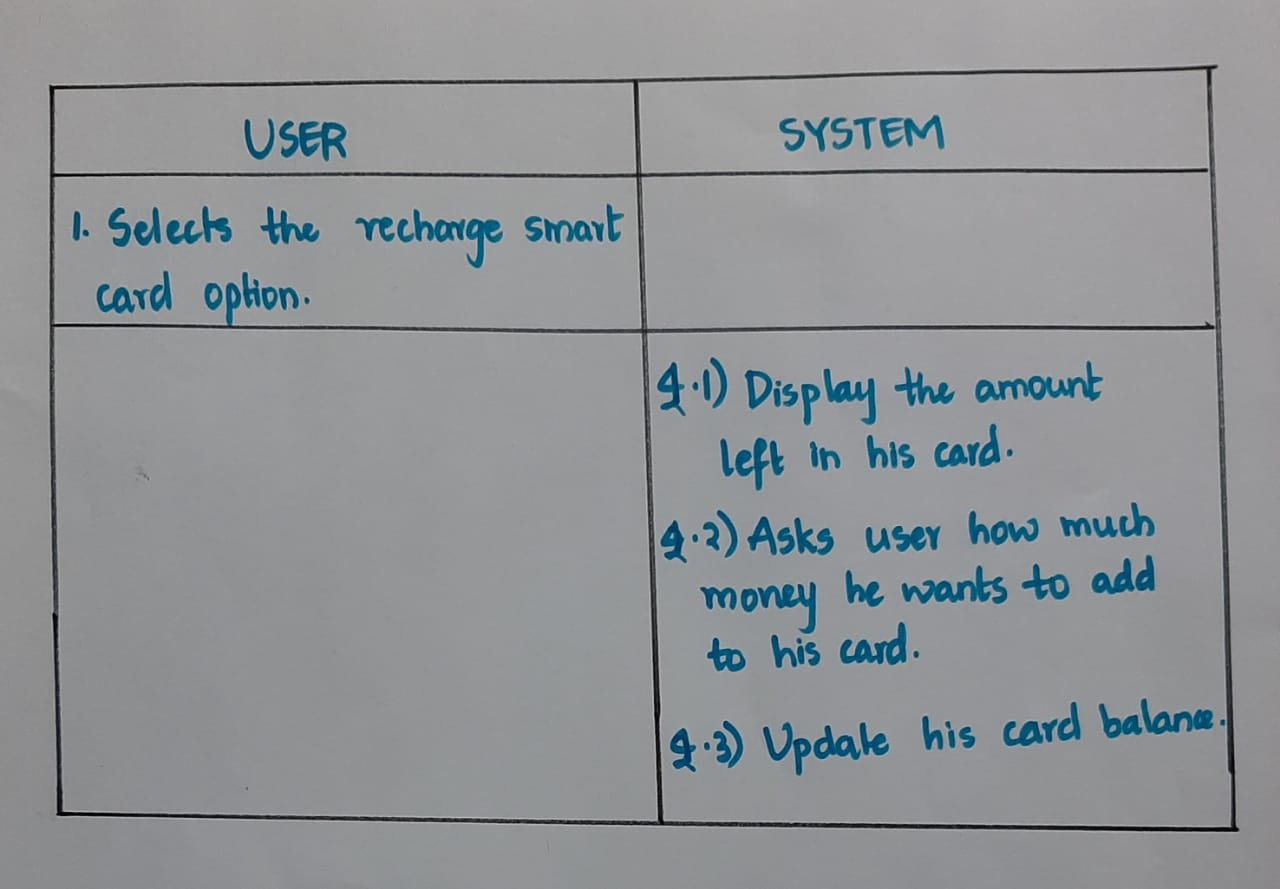 USER
SYSTEM
1. Selects the recharge smart
card option.
.1) Display the amount
left in his card.
.2) Asks user how much
money he wants to add
to his card.
.3) Update his card balance.